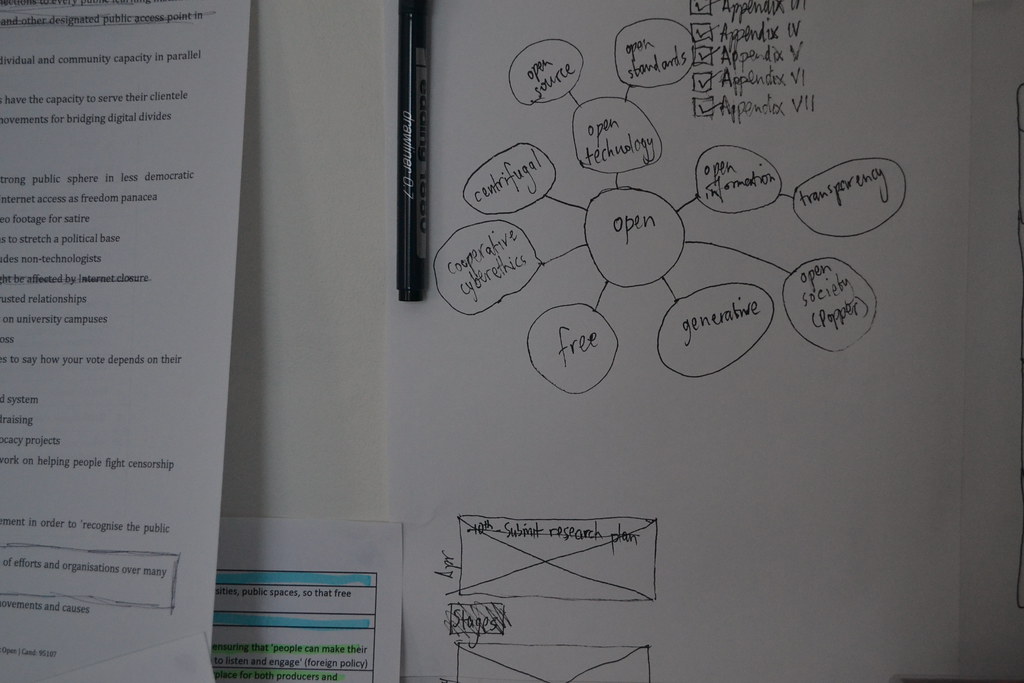 nections to every public learning
and other designated public access point in
dividual and community capacity in parallel
s have the capacity to serve their clientele
movements for bridging digital divides
trong public sphere in less democratic
nternet access as freedom panacea
eo footage for satire
s to stretch a political base
udes non-technologists
ght be affected by Internet closure
rusted relationships
on university campuses
oss
es to say how your vote depends on their
d system
draising
ocacy projects
work on helping people fight censorship
ement in order to 'recognise the public
of efforts and organisations over many
ovements and causes
Open | Cand. 95107
sities, public spaces, so that free
ensuring that 'people can make their
to listen and engage' (foreign policy)
place for both producers and
edding 1800
drawliner 0.7
Appendix III
Appendix IV
Appendix V
Appendix VI
Appendix VII
open
source
open
standards
open
technology
centrifugal
open
information
transparency
open
cooperative
cyberethics
open
society
(Popper)
generative
free
Apr
10th - Submit research plan
Stages